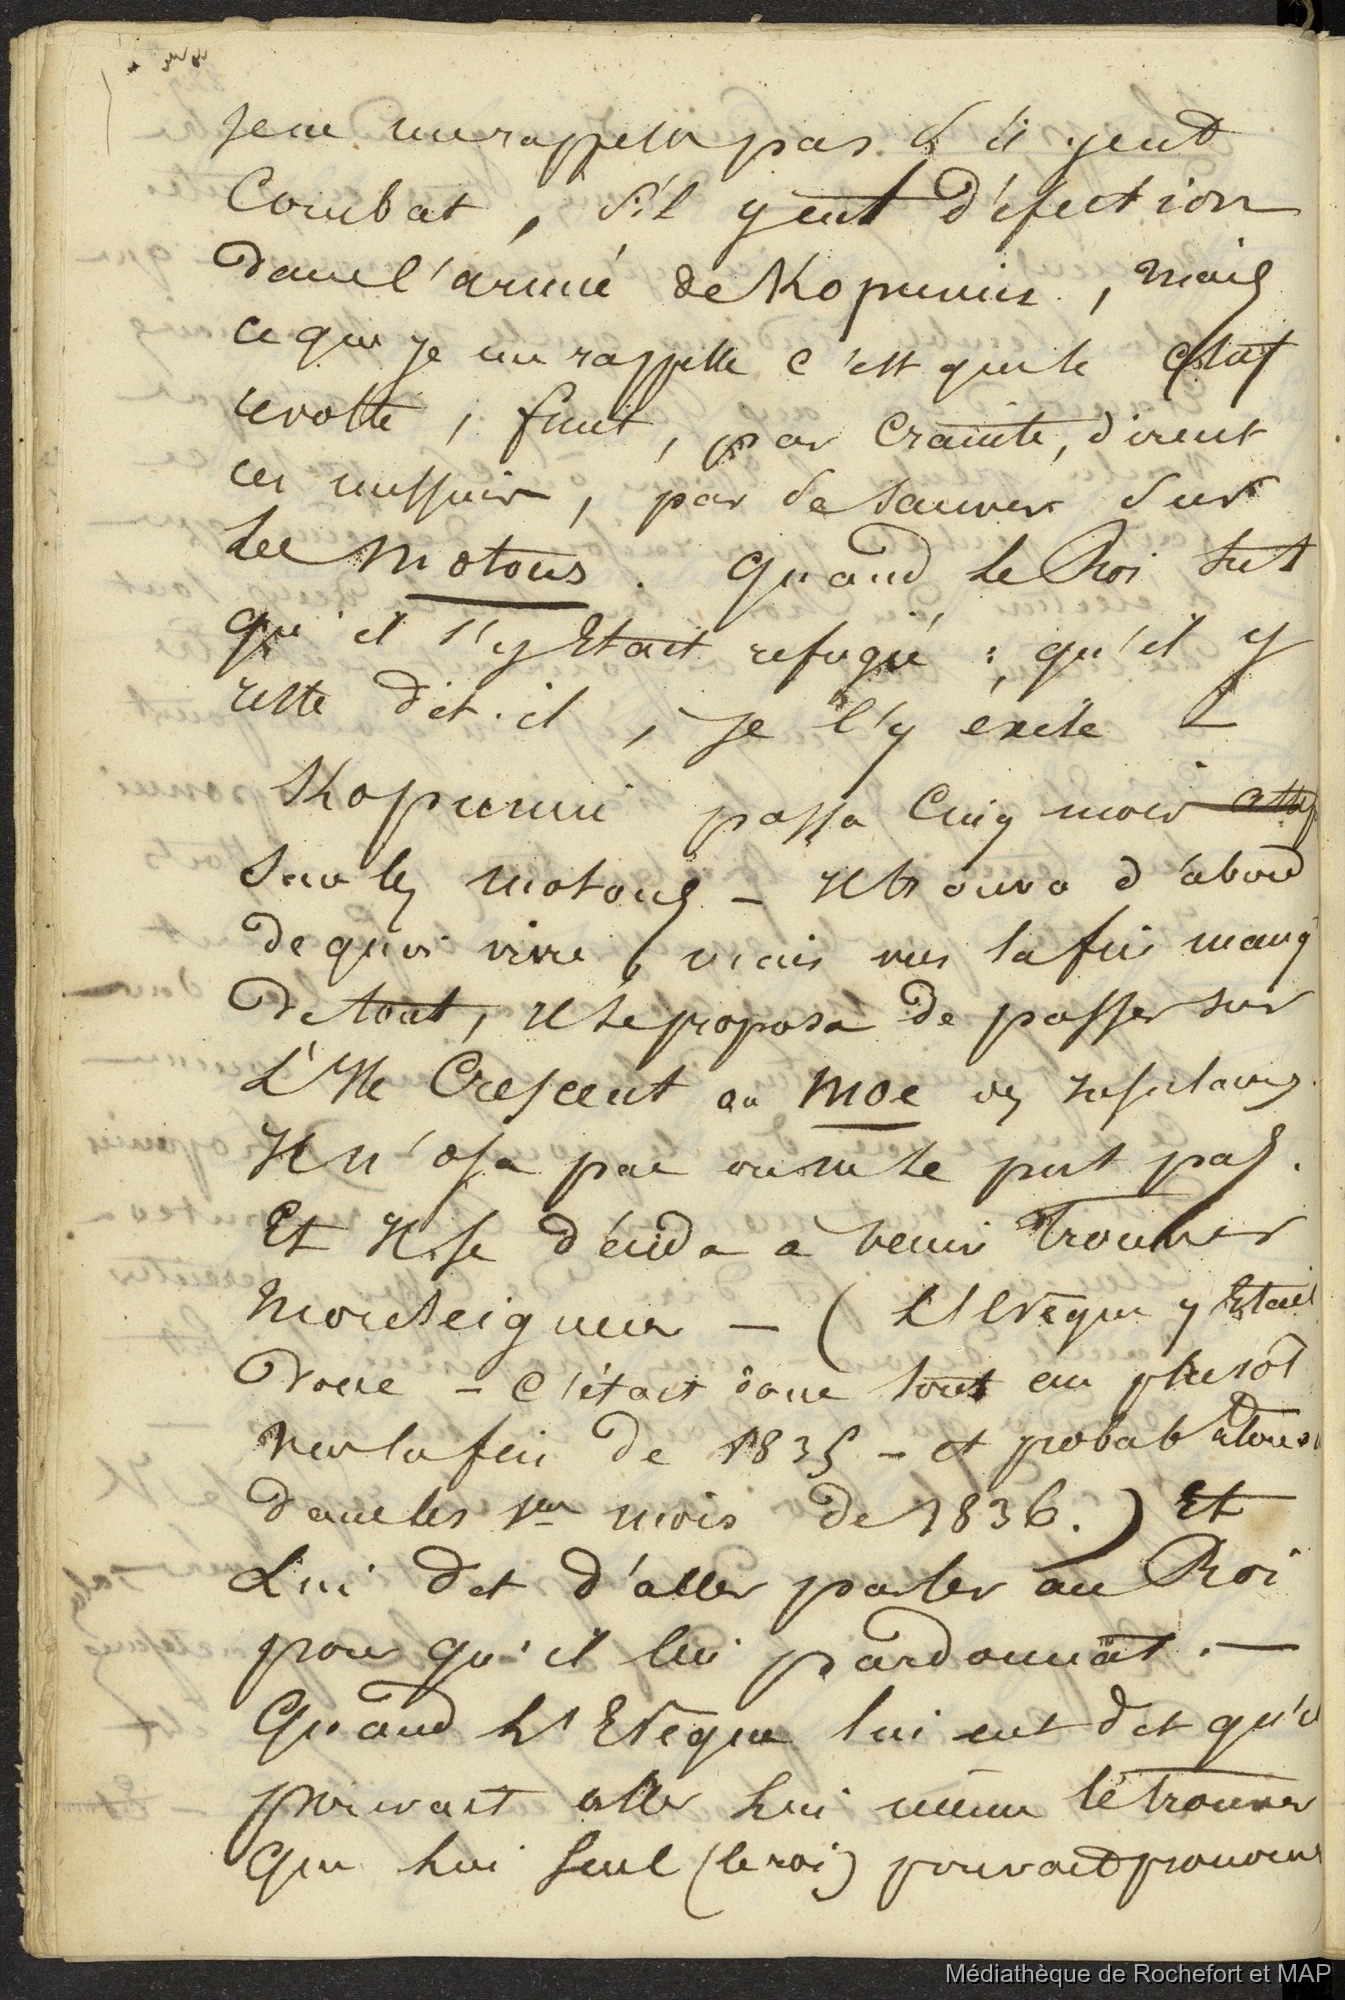 Je ne me rappelle pas s'il y eut
Combat, s'il y eut défection
dans l'armée de Kopunui, mais
ce que je me rappelle c'est que le chef
revolté, fuit, par crainte, dirent
ces messieurs, par se sauver sur
les motous. quand le Roi sut
qu'il s'y etait refugié ; qu'il y
reste dit-il, je l'y exile —
Kopunui passa cinq mois
sur les motous — Il trouva d'abord
de quoi vivre, mais vers la fin manq
de tout, Il se proposa de passer sur
L'Ile Crescent ou moe des Insulaires.
Il n'osa pas ou ne le put pas.
Et Il se décida à venir trouver
Monseigneur — (L'Evêque y Etait
donc — c'était donc tout au plutôt
vers la fin de 1835 — et probab
dans les 1ers mois de 1836.) Et
Lui dit d'aller parler au Roi
pour qu'il lui pardonnât. —
Quand L'Evêque lui eut dit qu'il
pouvait aller lui même le trouver
Que lui seul (le roi) pouvait prononcer
Médiathèque de Rochefort et MAP